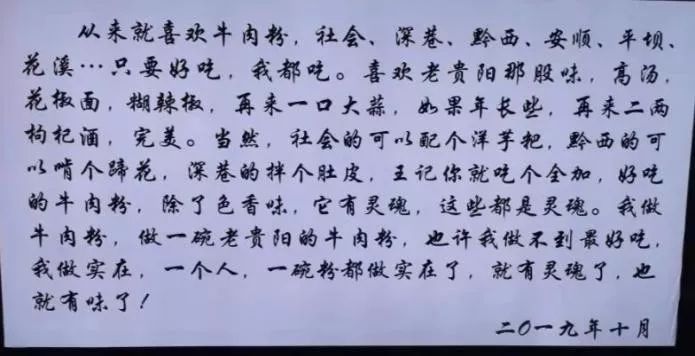 从来就喜欢牛肉粉，社会、深巷、黔西、安顺、平坝、
花溪…只要好吃，我都吃。喜欢老贵阳那股味，高汤，
花椒面，糊辣椒，再来一口大蒜，如果年长些，再来二两
枸杞酒，完美。当然，社会的可以配个洋芋粑，黔西的可
以啃个蹄花，深巷的拌个肚皮，王记你就吃个全加，好吃
的牛肉粉，除了色香味，它有灵魂，这些都是灵魂。我做
牛肉粉，做一碗老贵阳的牛肉粉，也许我做不到最好吃，
我做实在，一个人，一碗粉都做实在了，就有灵魂了，也
就有味了！
二〇一九年十月